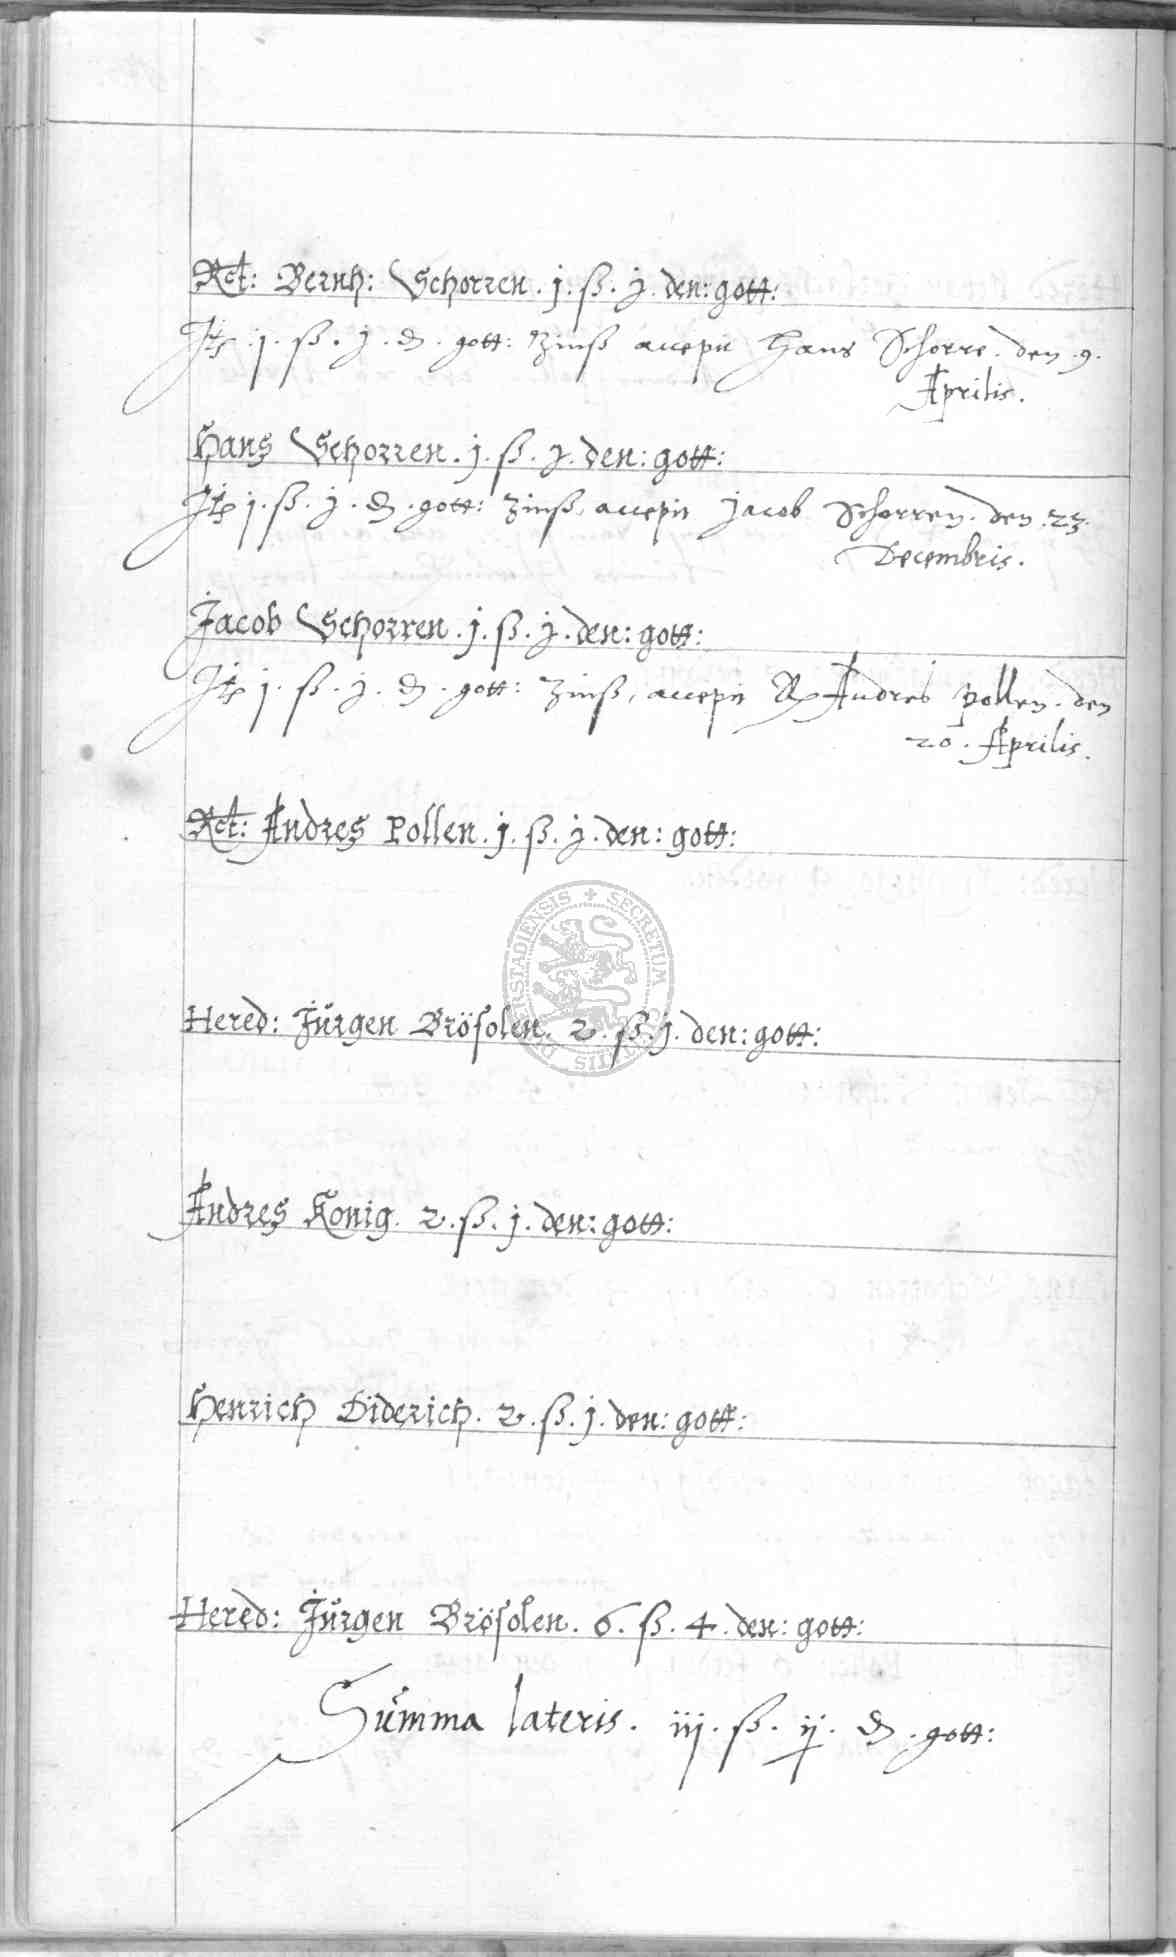 Rct: Bernh: Schorren . j . ß . j . den: gott:
Itz . j . ß . j . d . gott: Zinß accepit Hans Schorre . den . 9 .
Aprilis .
Hans Schorren . j . ß . j . den: gott:
Itz j . ß . j . d . gott: Zinß, accepit Jacob Schorren . den . 23 .
Decembris .
Jacob Schorren . j . ß . j . den: gott:
Itz j . ß . j . d . gott: Zinß, accepit Andres Pollen . den
20 . Aprilis .
Rct: Andres Pollen . j . ß . j . den: gott:
SECRETUM
Hered: Jürgen Brösolen . 2 . ß . j . den: gott:
Andres Konig . 2 . ß . j . den: gott:
Henrich Diderich . 2 . ß . j . den: gott:
Hered: Jürgen Brösolen . 6 . ß . 4 . den: gott:
Summa lateris . iij . ß . ij . d . gott: